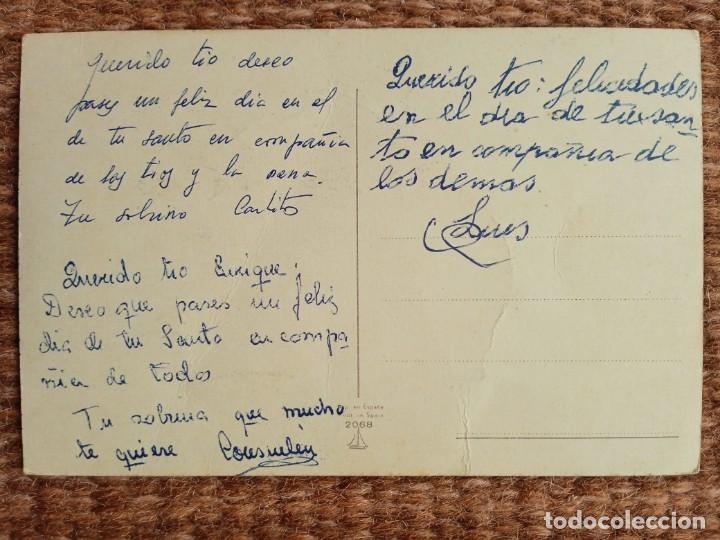 Querido tio deseo
pases un feliz dia en el
de tu santo en compañia
de los tios y la nena.
Tu sobrino Carlitos
Querido tio Enrique:
Deseo que pases un feliz
dia de tu Santo en compa
ñia de todos
Tu sobrina que mucho
te quiere
Querido tio: felicidades
en el dia de tu san
to en compañia de
los demas
Luis
en España
in Spain
2068
todocoleccion
todocoleccion.net